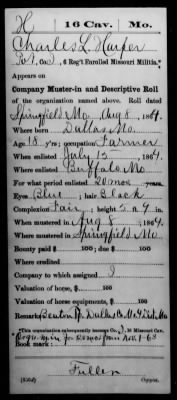 H 16 Cav. Mo.
Charles L. Harper
Pvt, Co. J, 6 Reg't Enrolled Missouri Militia.*
Appears on
Company Muster-in and Descriptive Roll
of the organization named above. Roll dated
Springfield Mo, Aug 8, 1864.
Where born Dallas Mo.
Age 18 y'rs; occupation Farmer
When enlisted July 15, 1864.
Where enlisted Buffalo Mo
For what period enlisted 20 mos years.
Eyes Blue; hair Black
Complexion Fair; height 5 ft. 9 in.
When mustered in Aug 8, 1864.
Where mustered in Springfield Mo
Bounty paid $ 100; due $ 100
Where credited
Company to which assigned J
Valuation of horse, $ 100
Valuation of horse equipments, $ 100
Remarks: Benton Tp. Dallas Co. Mo
*This organization subsequently became Co. 16 Missouri Cav.
for 20 mos from Nov 1-63
Book mark:
Fuller
Copyist.